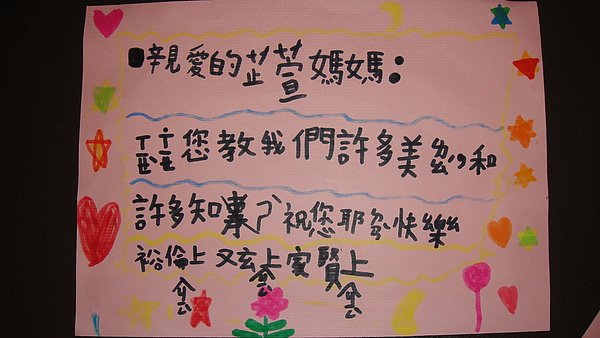 親愛的芷萱媽媽：
您教我們許多美和
許多知祝您耶快樂
裕倫上 又玄上 家賢上